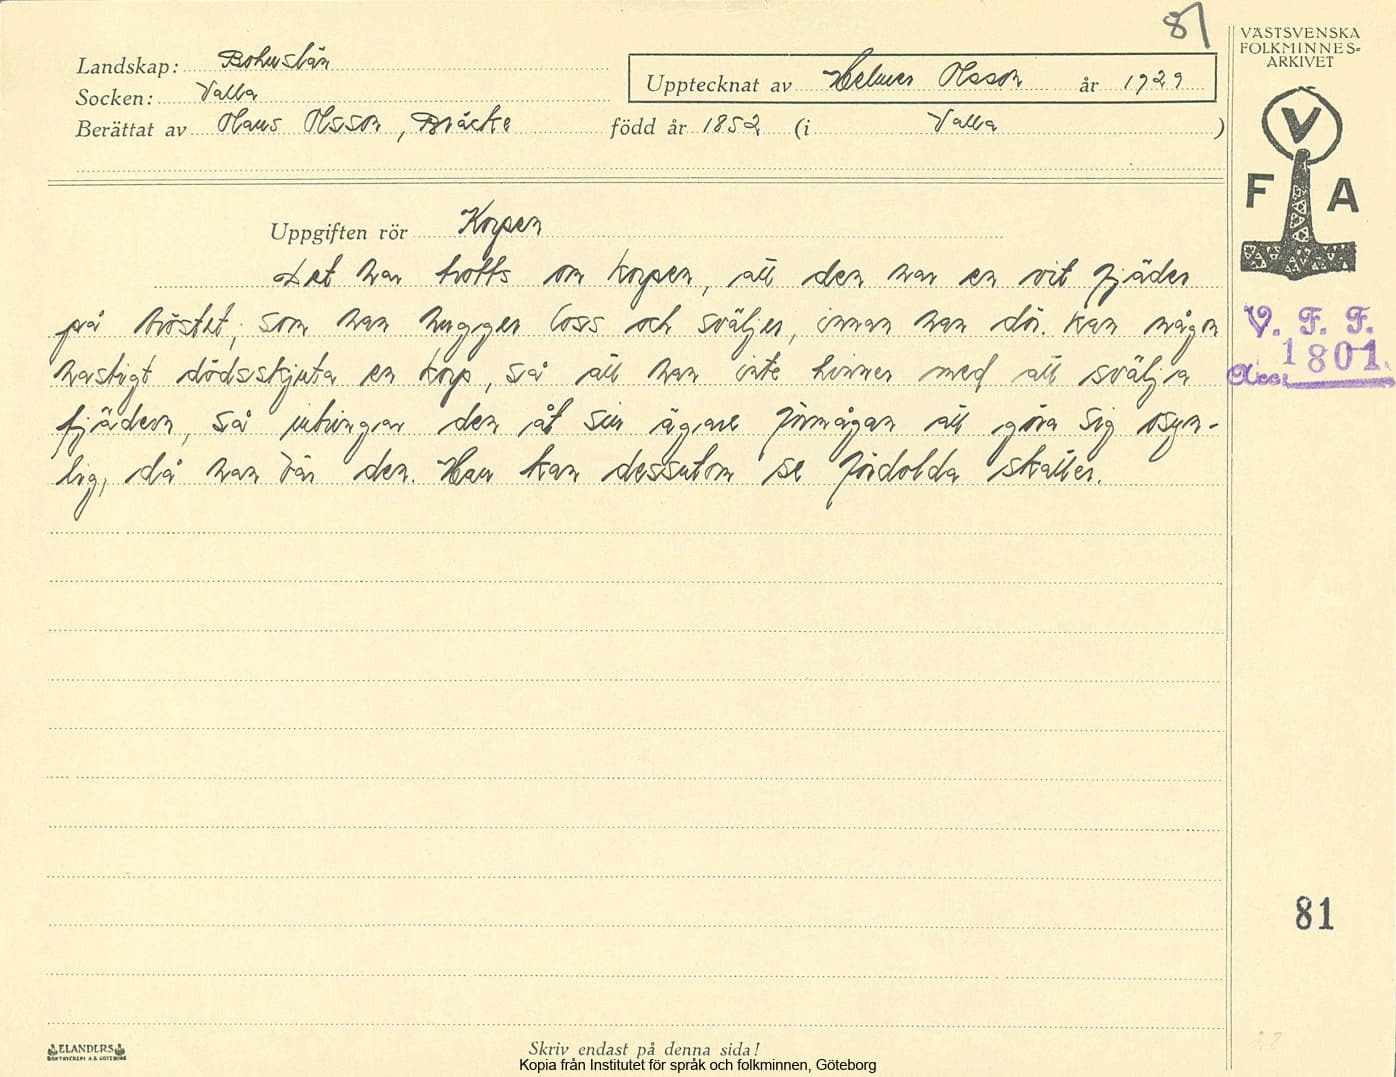 81
VÄSTSVENSKA
FOLKMINNES-
ARKIVET
Landskap: Bohuslän
Upptecknat av Helmer Olsson år 1929
Socken: Valla
Berättat av Hans Olsson, Bräcke född år 1852 (i Valla)
V
F A
Uppgiften rör Korpen
Det har trotts om korpen, att den har en vit fjäder
på bröstet, som han hugger loss och sväljer, innan han dör. Kan någon
hastigt dödsskjuta en korp, så att han inte hinner med att svälja
fjädern, så inbringar den åt sin ägare förmågan att göra sig osyn-
lig, då han bär den. Han kan dessutom se fördolda skatter.
V. F. F.
Acc: 1801.
81
28
ELANDERS
BOKTRYCKERI A.B. GÖTEBORG
Skriv endast på denna sida!
Kopia från Institutet för språk och folkminnen, Göteborg